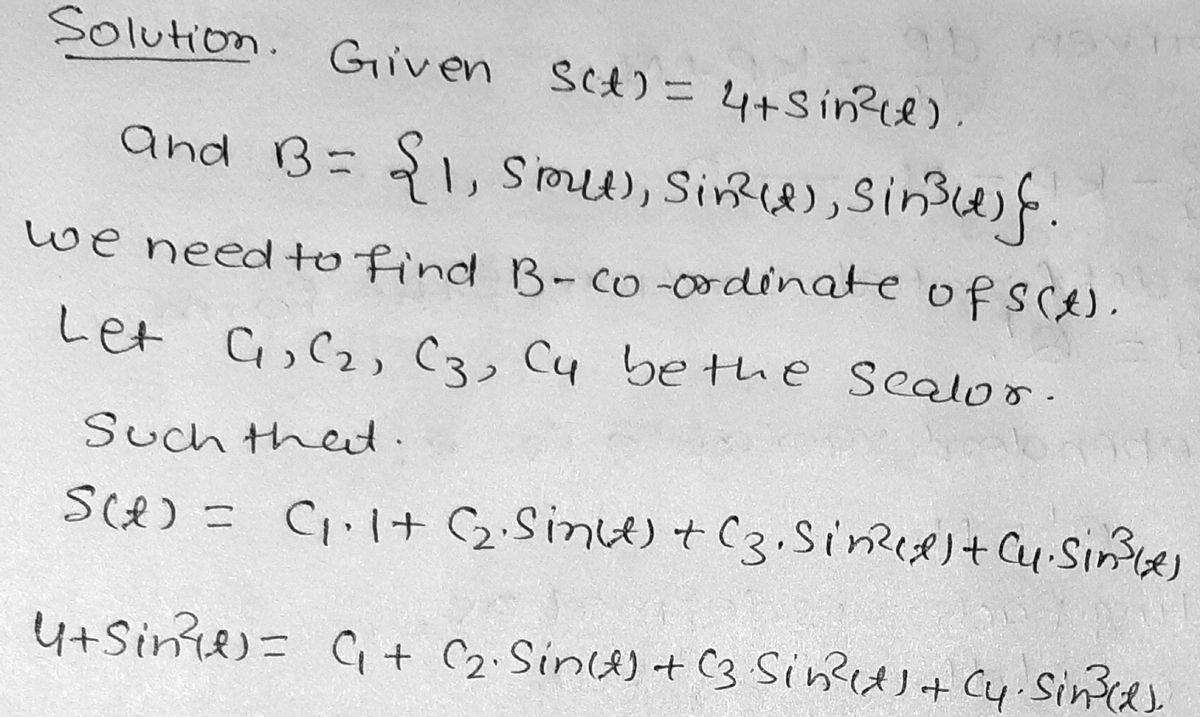 Solution. Given S(t) = 4+Sin²(t).
and B = {1, Sin(t), Sin²(t), Sin³(t)}.
we need to find B-co-ordinate of S(t).
Let C₁, C₂, C₃, C₄ be the Scalor.
Such that.
S(t) = C₁.1+ C₂.Sin(t) + C₃.Sin²(t)+ C₄.Sin³(t)
4+Sin²(t) = C₁ + C₂.Sin(t) + C₃ Sin²(t) + C₄.Sin³(t).